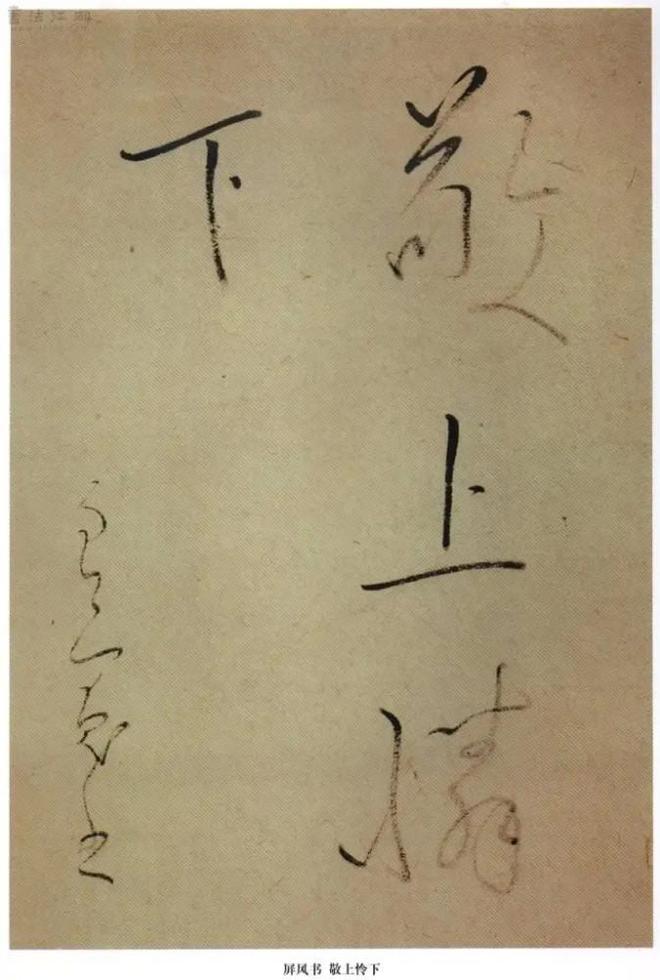 敬上憐
下
屏风书 敬上怜下
书法江湖